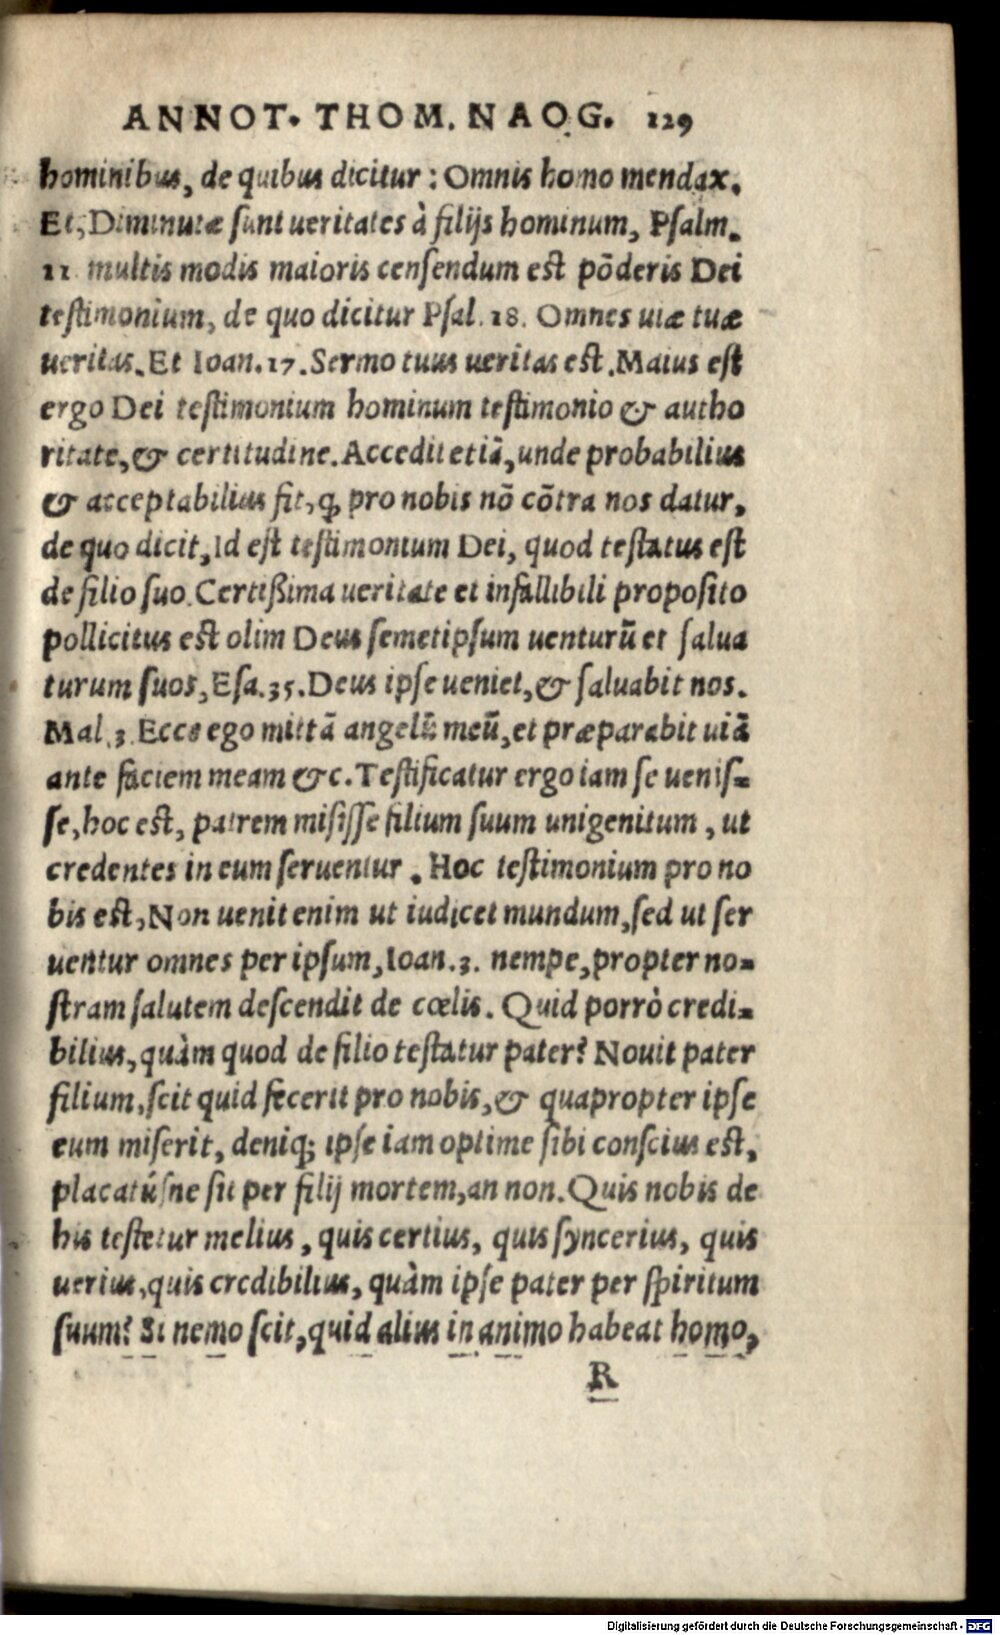 ANNOT. THOM. NAOG. 129
hominibus, de quibus dicitur : Omnis homo mendax.
Et, Diminutæ sunt ueritates à filijs hominum, Psalm.
11 multis modis maioris censendum est põderis Dei
testimonium, de quo dicitur Psal. 18. Omnes uiæ tuæ
ueritas. Et Ioan. 17. Sermo tuus ueritas est. Maius est
ergo Dei testimonium hominum testimonio & autho
ritate, & certitudine. Accedit etiã, unde probabilius
& acceptabilius fit, ꝙ pro nobis nõ cõtra nos datur,
de quo dicit, Id est testimonium Dei, quod testatus est
de filio suo. Certißima ueritate et infallibili proposito
pollicitus est olim Deus semetipsum uenturũ et salua
turum suos, Esa. 35. Deus ipse ueniet, & saluabit nos.
Mal. 3. Ecce ego mittã angelũ meũ, et præparabit uiã
ante faciem meam &c. Testificatur ergo iam se uenis=
se, hoc est, patrem misisse filium suum unigenitum, ut
credentes in eum seruentur. Hoc testimonium pro no
bis est, Non uenit enim ut iudicet mundum, sed ut ser
uentur omnes per ipsum, Ioan. 3. nempe, propter no=
stram salutem descendit de cœlis. Quid porrò credi=
bilius, quàm quod de filio testatur pater? Nouit pater
filium, scit quid fecerit pro nobis, & quapropter ipse
eum miserit, deniq; ipse iam optime sibi conscius est,
placatúsne sit per filij mortem, an non. Quis nobis de
his testetur melius, quis certius, quis syncerius, quis
uerius, quis credibilius, quàm ipse pater per spiritum
suum? Si nemo scit, quid alius in animo habeat homo,
R
Digitalisierung gefördert durch die Deutsche Forschungsgemeinschaft - DFG